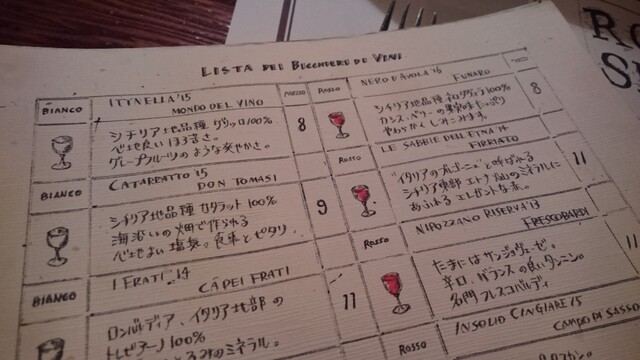 LISTA DEI BICCHIERE DI VINI
BIANCO
MONDO DEL VINO
シチリア地品種 グリッロ100%
心地良いほろ苦さ。
グレープフルーツのような爽やかさ。
8
BIANCO
CATARRATTO '15
DON TOMASI
シチリア地品種 カタラット100%
海沿いの畑で作られる
心地よい塩気。食事とピタリ
9
BIANCO
I FRATI '14
CÀ DEI FRATI
ロンバルディア、イタリア北部の
トレビアーノ100%
ミネラル。
11
ROSSO
NERO D'AVOLA '16
FUNARO
シチリア地品種 ネロダヴォラ100%
カシス、ベリーの果実味たっぷり
やわらかくしみこみます。
8
ROSSO
LE SABBIE DELL'ETNA '14
FIRRIATO
"イタリアのブルゴーニュ"と呼ばれる
シチリア東部 エトナ火山のミネラルに
あふれる エレガントな赤。
11
ROSSO
NIPOZZANO RISERVA '13
FRESCOBALDI
たまにはサンジョヴェーゼ。
辛口、バランスの良いタンニン。
名門 フレスコバルディ
11
ROSSO
INSOLIO CINGIARE '15
CAMPO DI SASSO